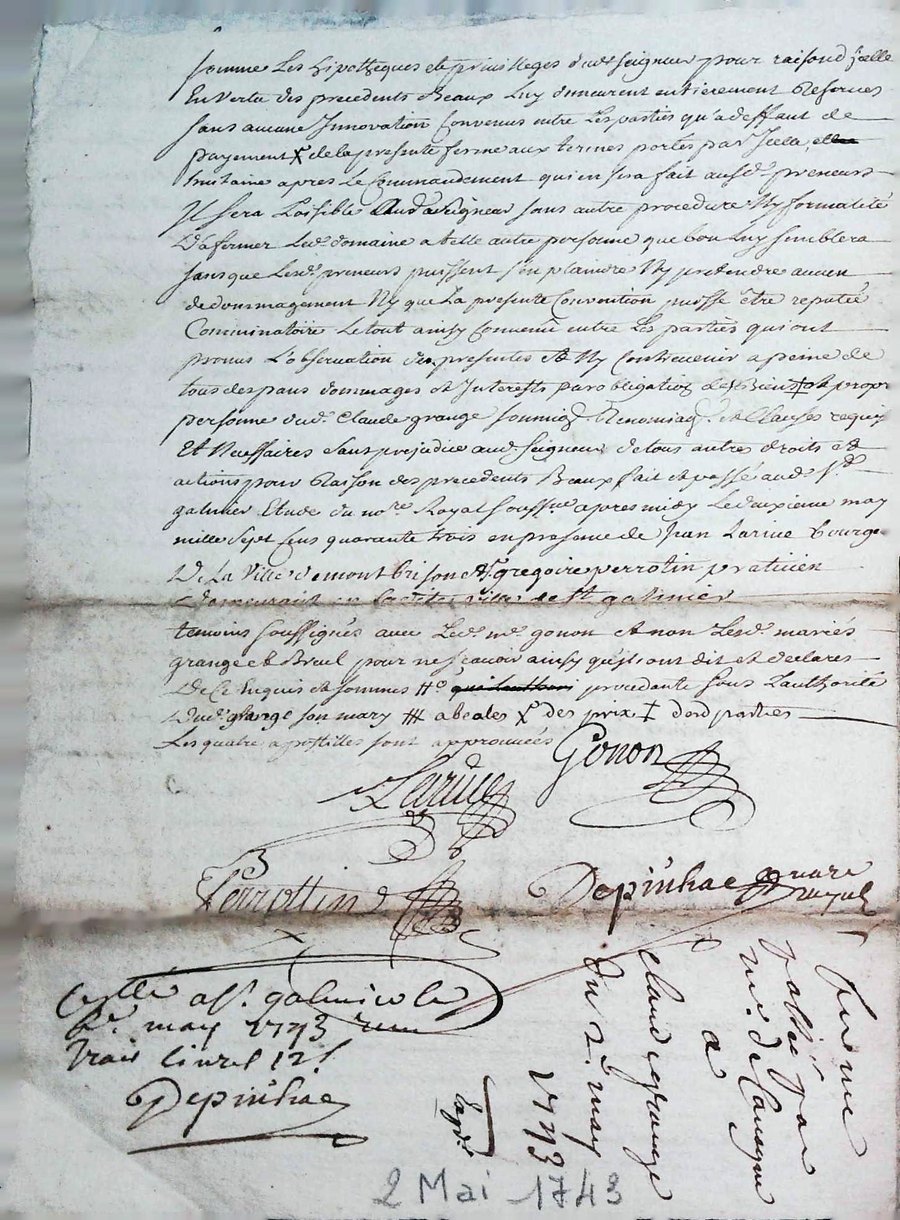 somme Les hipotheques et privilleges dud. seigneur pour raison d'jcelle
En vertu des precedents Beaux Luy demeurent entierement Reserves
sans aucune Innovation Convenus entre Les parties qu'a deffaut de
payement X de la presente ferme aux termes portés par Icela
huitaine apres Le Commandement qui en sera fait ausd. preneurs
Il sera Loisible Aud. seigneur sans autre procedure Ny formalité
D'afermer Led. domaine a telle autre personne que bon Luy semblera
sans que Lesd. preneurs puissent s'en plaindre Ny pretendre aucun
dedommagement Ny que La presente Convention puisse être reputée
Comminatoire Le tout ainsy Convenu entre Les parties qui ont
promis L'observation des presentes Et Ny Contrevenir a peine de
tous despans dommages et Interests par obligation de Biens ‡ et propre
personne dud. Claude grange soumiss. Renonciag. et Clauses requis
Et Necessaires sans prejudice aud. seigneur de tous autres droits et
actions pour Raison des precedents Beaux fait et passé aud. St
galmier Etude du nore. Royal soussne. apres midy Le deuxieme may
mille sept Cens quarante trois en presence de Jean Larive Bourge
De La Ville de montbrison & Sr gregoire perrotin praticien
Demeurant en La ditte ville de St galmier
temoins soussignés avec Led. me. gonon et non Lesd. mariés
grange et Breul pour ne scavoir ainsy qu'ils ont dit et declarés
De Ce Enquis et sommes ‡‡ procedante sous L'authorité
Dud. grange son mary ‡‡‡ a beales X des prix ‡ dord parties
Les quatre apostilles sont approuvées
Gonon
Larive
Perrottin
Depinhac nore
royal
a St. galmier le
may 1743
trois livres 12 s.
Depinhac
ferme
passée par
mr. de
a
claude grange
du 2e. may
1743
2 Mai 1743